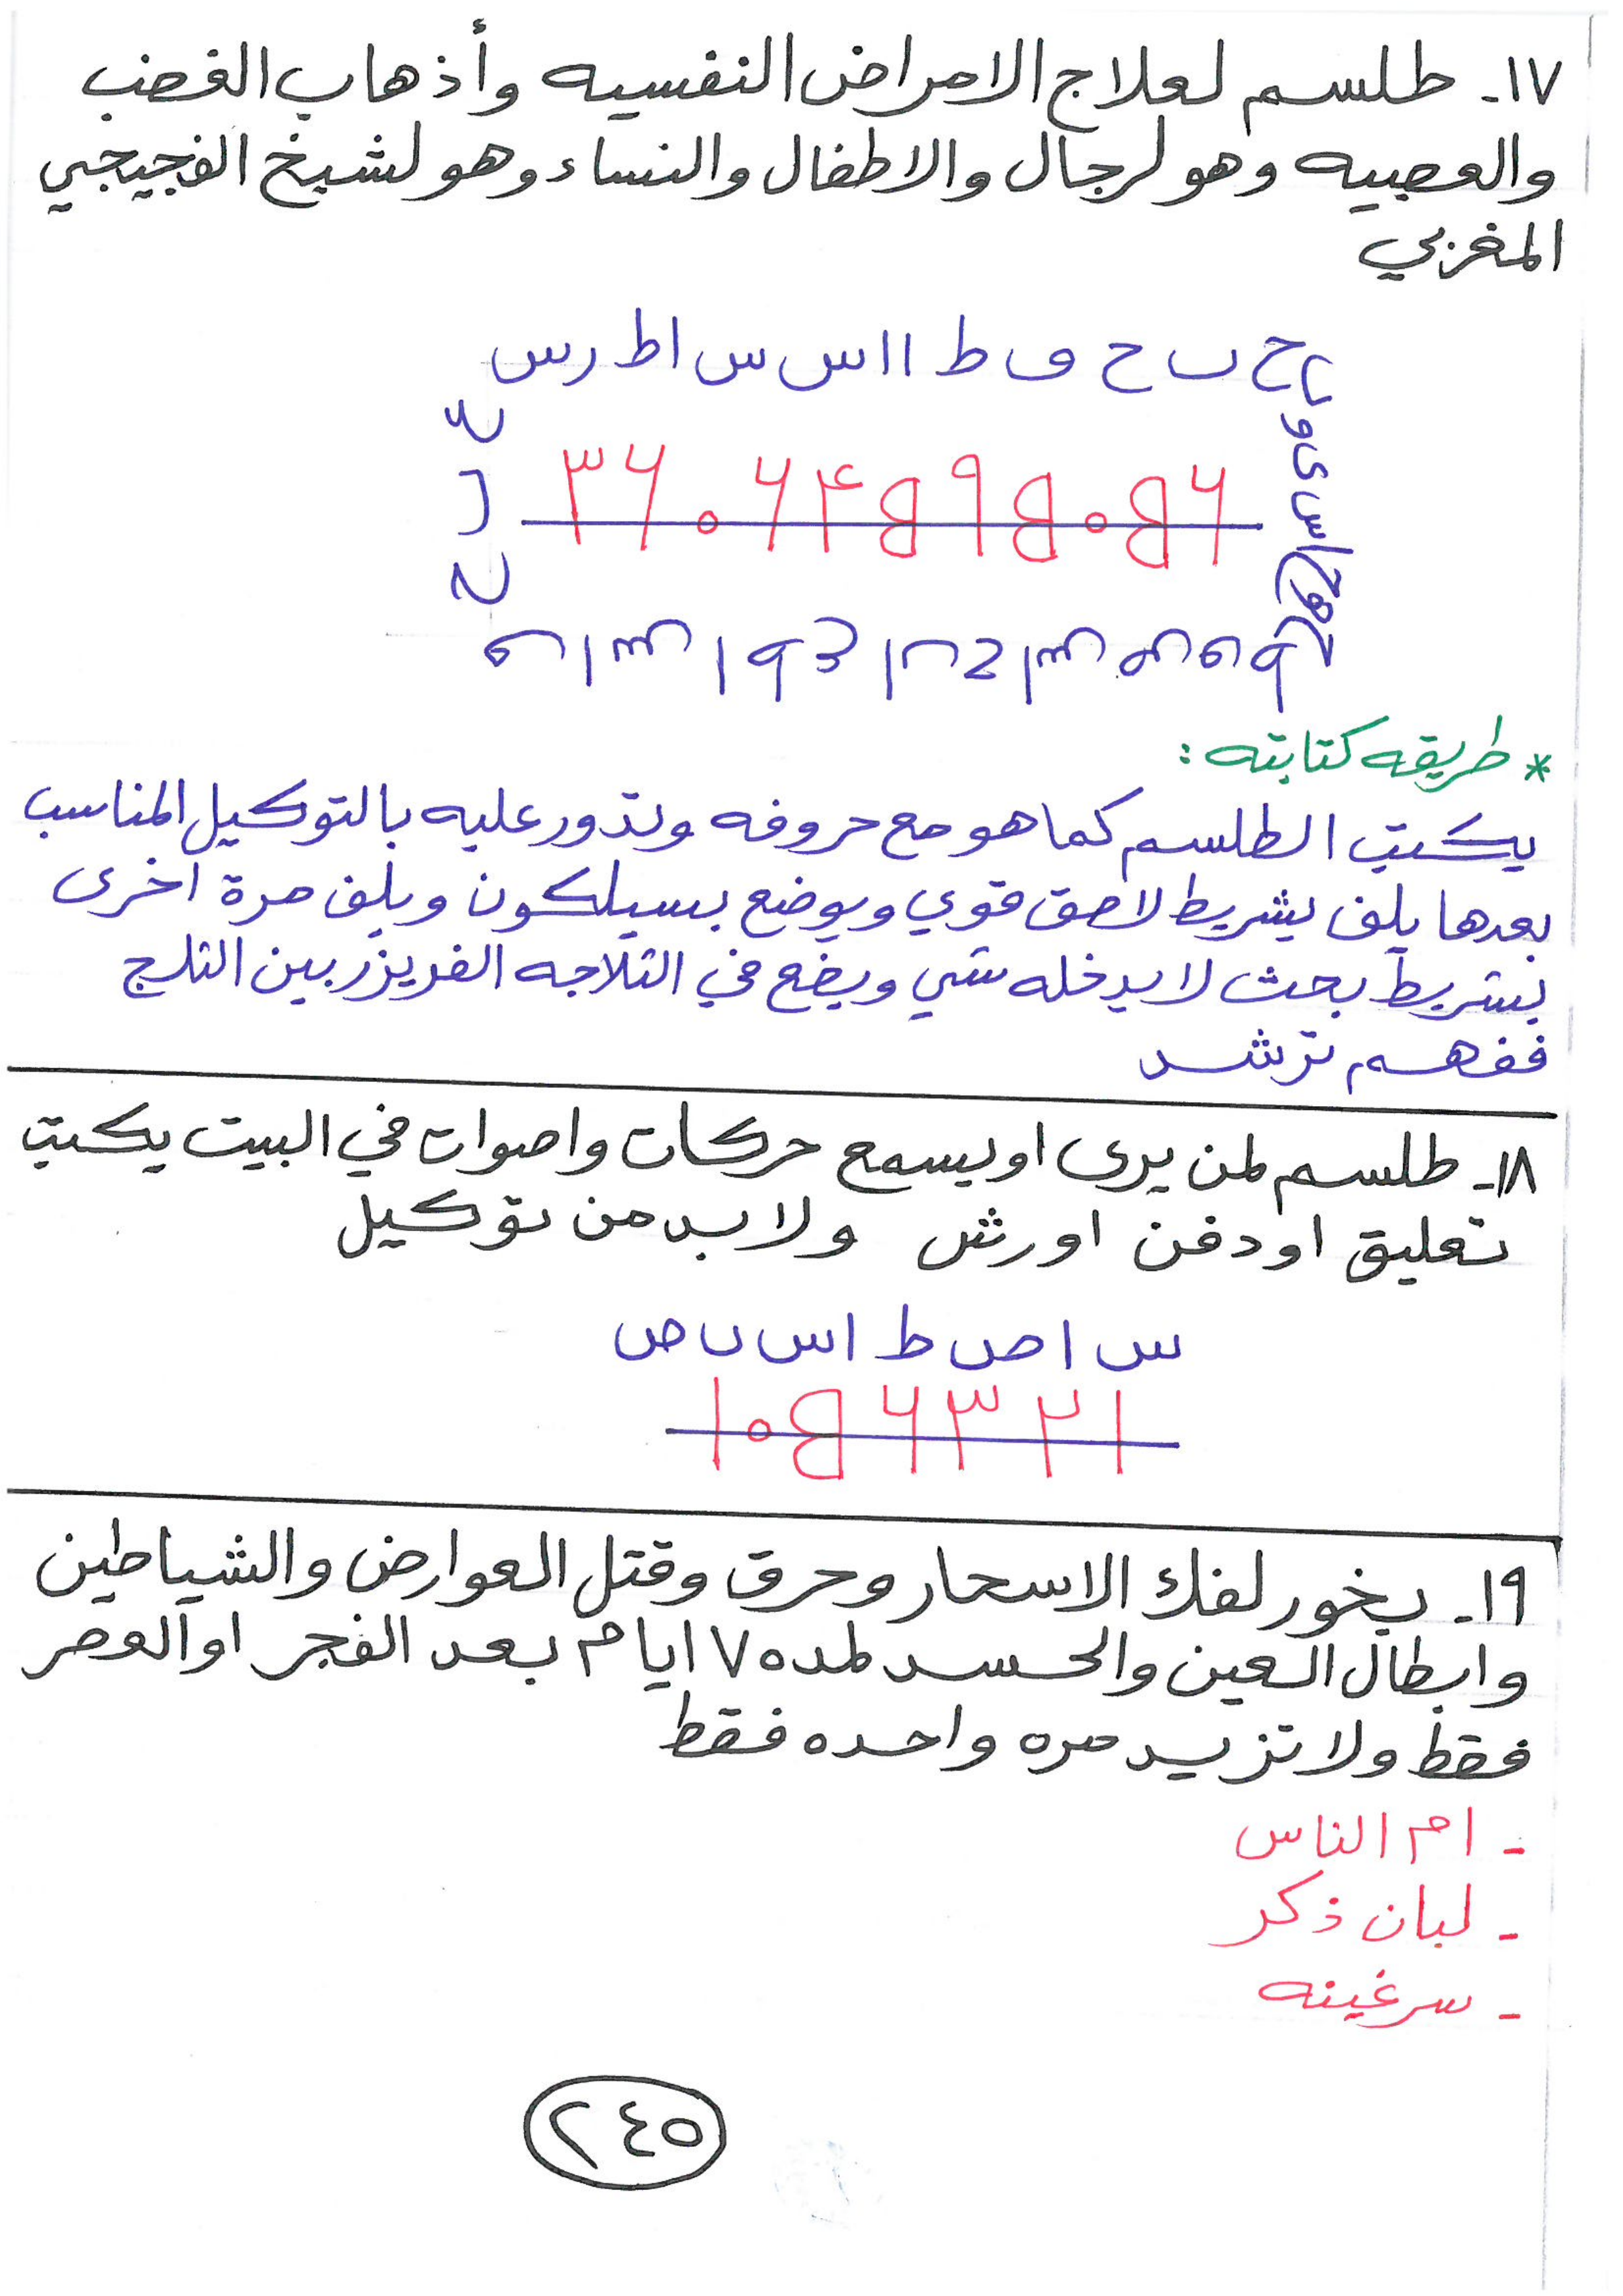 ١٧- طلسم لعلاج الامراض النفسيه وأذهاب الغضب
والعصبيه وهو لرجال والاطفال والنساء وهو لشيخ الفجيجي
المغربي
ح ب ح و ط ا ا س س ا ط ر س
* طريقه كتابته :
يكتب الطلسم كما هو مع حروفه وتدور عليه بالتوكيل المناسب
بعدها يلف بشريط لاصق قوي ويوضع بسيلكون ويلف مرة اخرى
بشريط بحث لا يدخله شي ويضع في الثلاجه الفريزر بين الثلج
ففهم ترشد
١٨- طلسم لمن يرى او يسمع حركات واصوات في البيت يكتب
تعليق او دفن او رش ولا بد من توكيل
س ا ص ط ا س ب ص
١٩- بخور لفك الاسحار وحرق وقتل العوارض والشياطين
وابطال العين والحسد لمده ٧ ايام بعد الفجر او العصر
فقط ولا تزيد مره واحده فقط
- ام الناس
- لبان ذكر
- سرغينه
٢٤٥